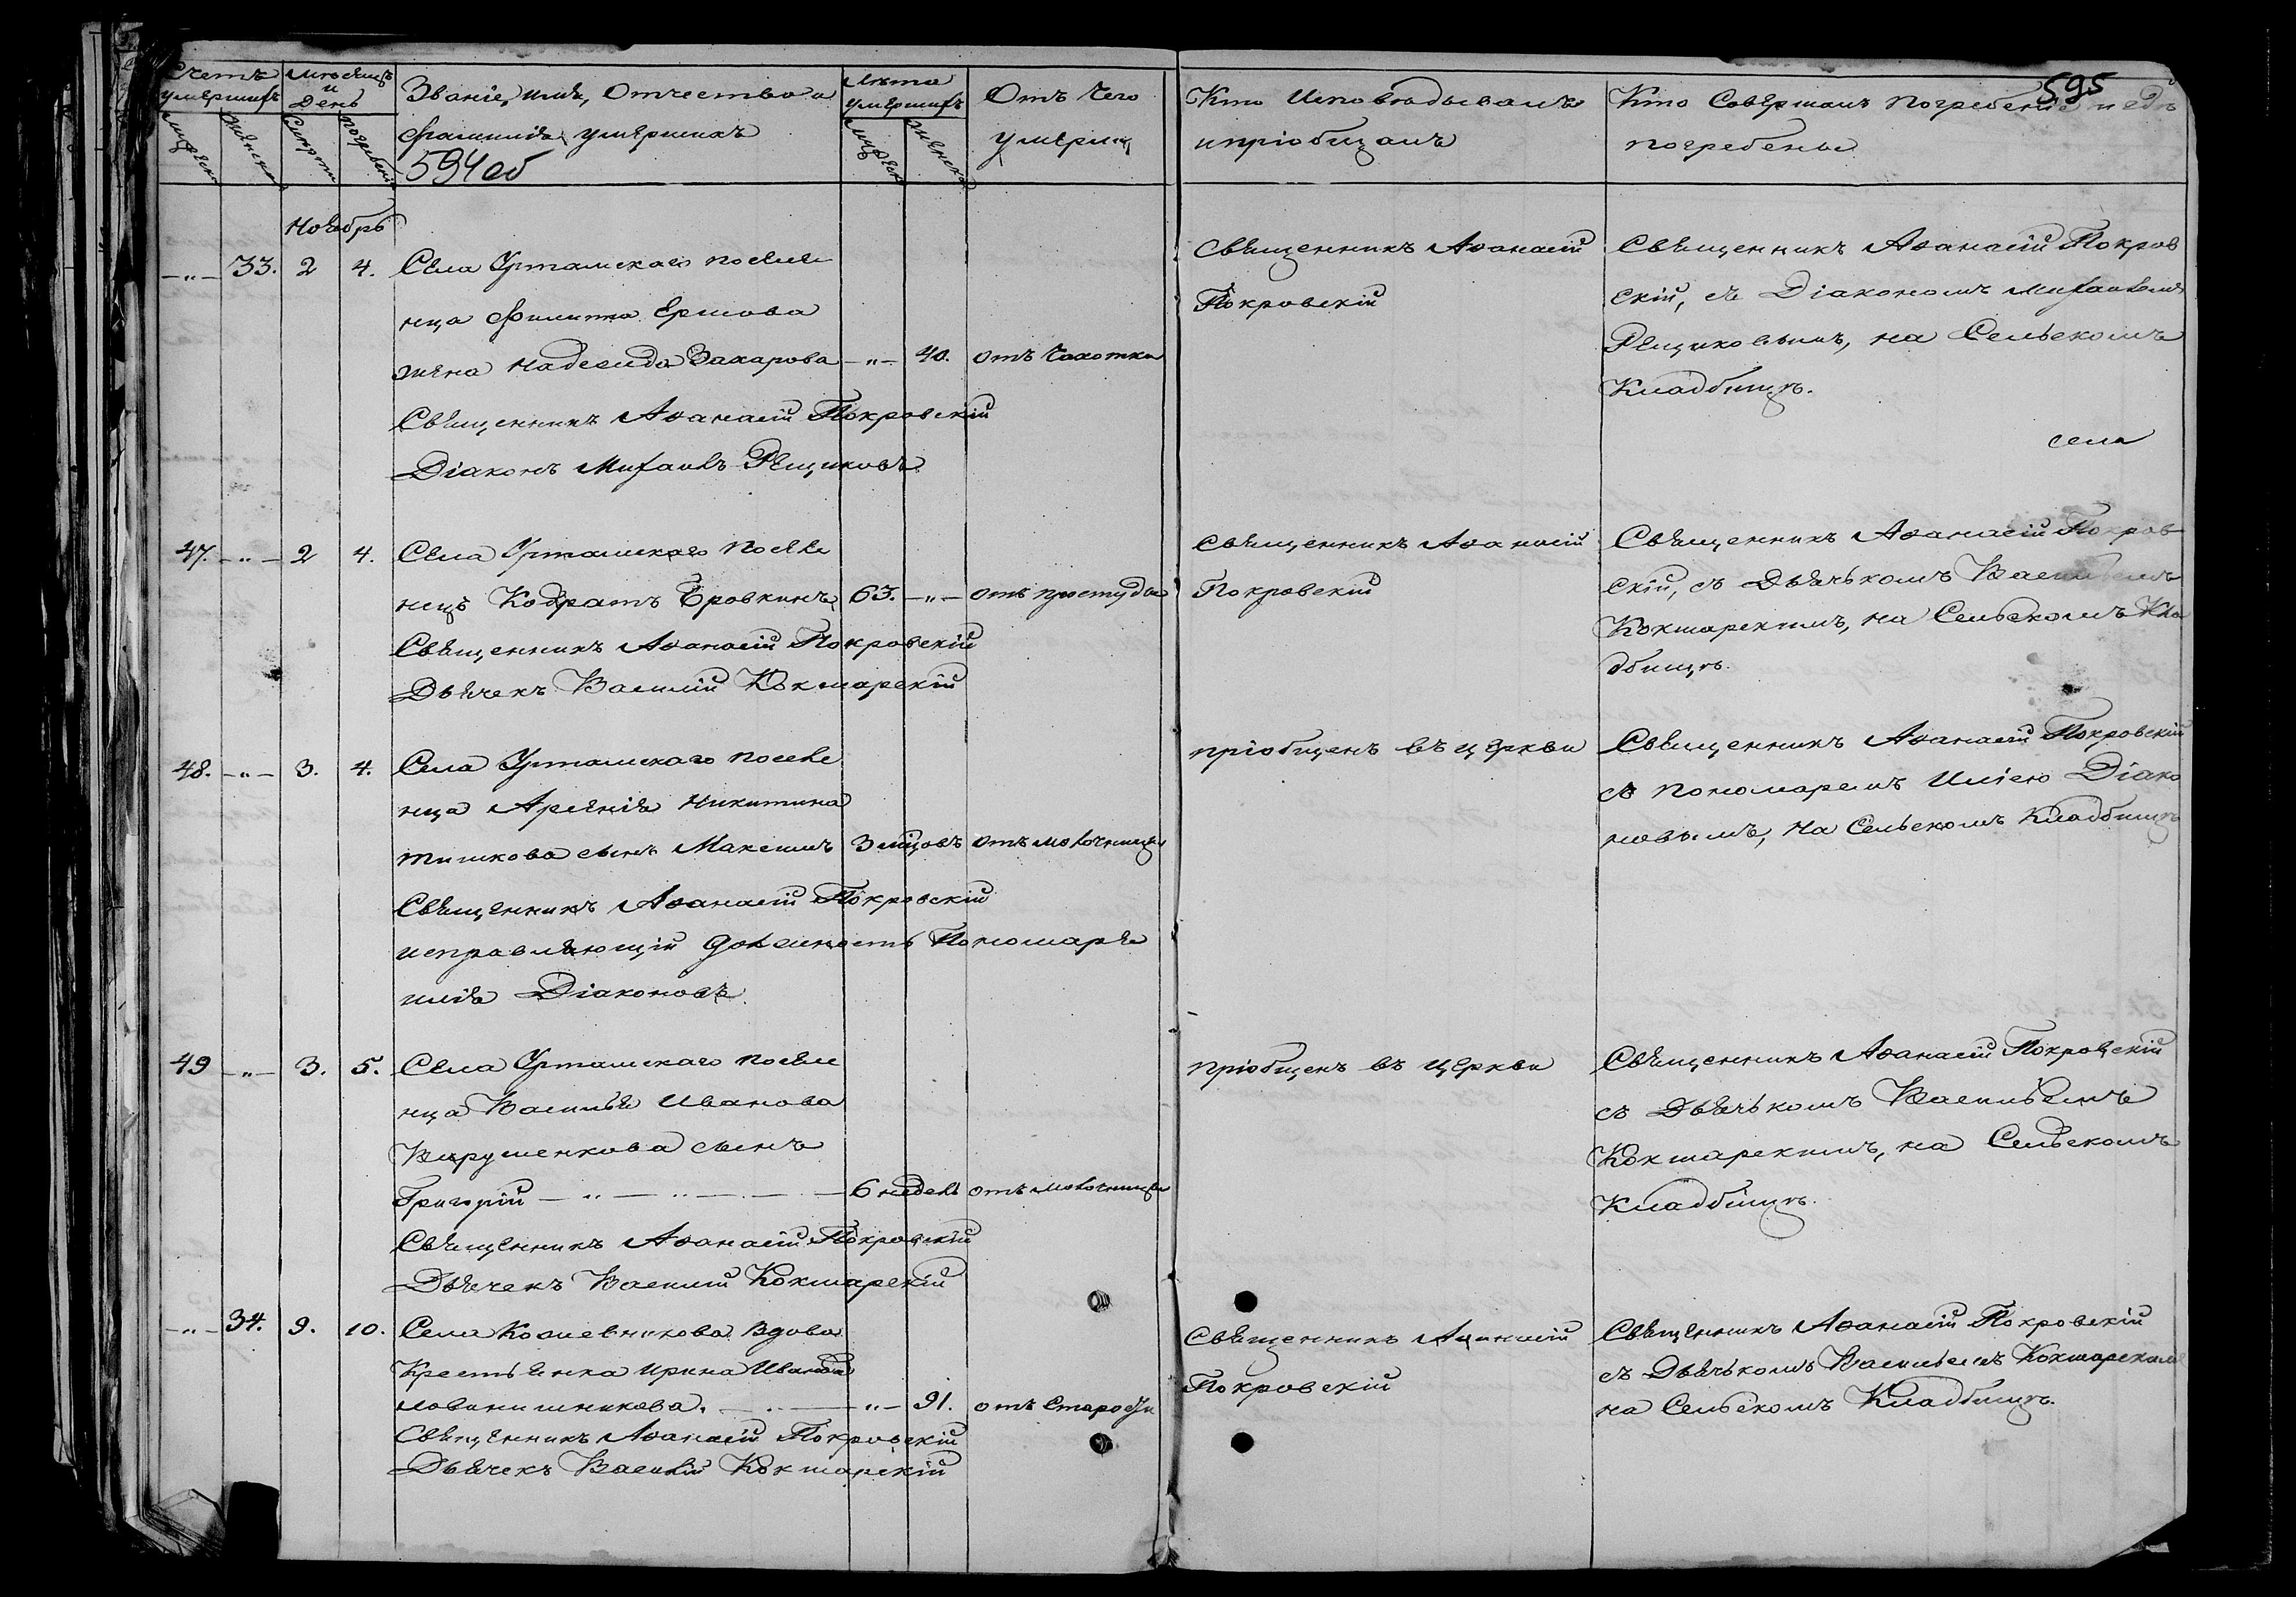 Счетъ умершихъ
Мѣсяцъ и День
Званіе, имя, Отчество и
фамилія умершихъ
594об
Лѣта умершихъ
Отъ чего
умерли
Кто Исповѣдывалъ
и пріобщалъ
595
Кто Совершалъ погребеніе и гдѣ
погребены
Мужеска
Женска
Смерти
погребенія
Мужеск
Женска
Ноябрь
—„— 33. 2 4. Села Уртамскаго поселе
нца Филиппа Ершова
жена Надежда Захарова —„— 40. отъ Чахотки
Священникъ Аѳанасій Покровскій
Діаконъ Михаилъ Рещиковъ.
Священникъ Аѳанасій
Покровскій
Священникъ Аѳанасій Покров
скій, съ Діакономъ Михаиломъ
Рещиковымъ, на Сельскомъ
Кладбищѣ.
села
47. —„— 2 4. Села Уртамскаго поселе
нецъ Кодратъ Еровкинъ 63. —„— отъ простуды
Священникъ Аѳанасій Покровскій
Дьячекъ Василій Кокшарскій
Священникъ Аѳанасій
Покровскій
Священникъ Аѳанасій Покров
скій, съ Дьячькомъ Васильемъ
Кокшарскимъ, на Сельскомъ Кла
дбищѣ.
48. —„— 3. 4. Села Уртамскаго поселе
нца Арсенія Никитина
тишкова сынъ Максимъ 3 мѣцовъ отъ молочницы
Священникъ Аѳанасій Покровскій
исправляющій должность Пономаря
илія Діаконовъ.
пріобщенъ въ церкви
Священникъ Аѳанасій Покровскій
съ пономаремъ Иліею Діако
новымъ, на Сельскомъ Кладбищѣ
49 —„— 3. 5. Села Уртамскаго поселе
нца Василья Иванова
сынъ
Григорій —„—„— 6 недель отъ молочницы
Священникъ Аѳанасій Покровскій
Дьячекъ Василій Кокшарскій
пріобщенъ въ церкви
Священникъ Аѳанасій Покровскій
съ Дьячькомъ Васильемъ
Кокшарскимъ, на Сельскомъ
Кладбищѣ.
—„— 34. 9. 10. Села Кожевникова вдова
Крестьянка Ирина Иванова
—„— 91. отъ Старости
Священникъ Аѳанасій Покровскій
Дьячекъ Василій Кокшарскій
Священникъ Аѳанасій
Покровскій
Священникъ Аѳанасій Покровскій
съ Дьячькомъ Васильемъ Кокшарскимъ
на Сельскомъ Кладбищѣ.